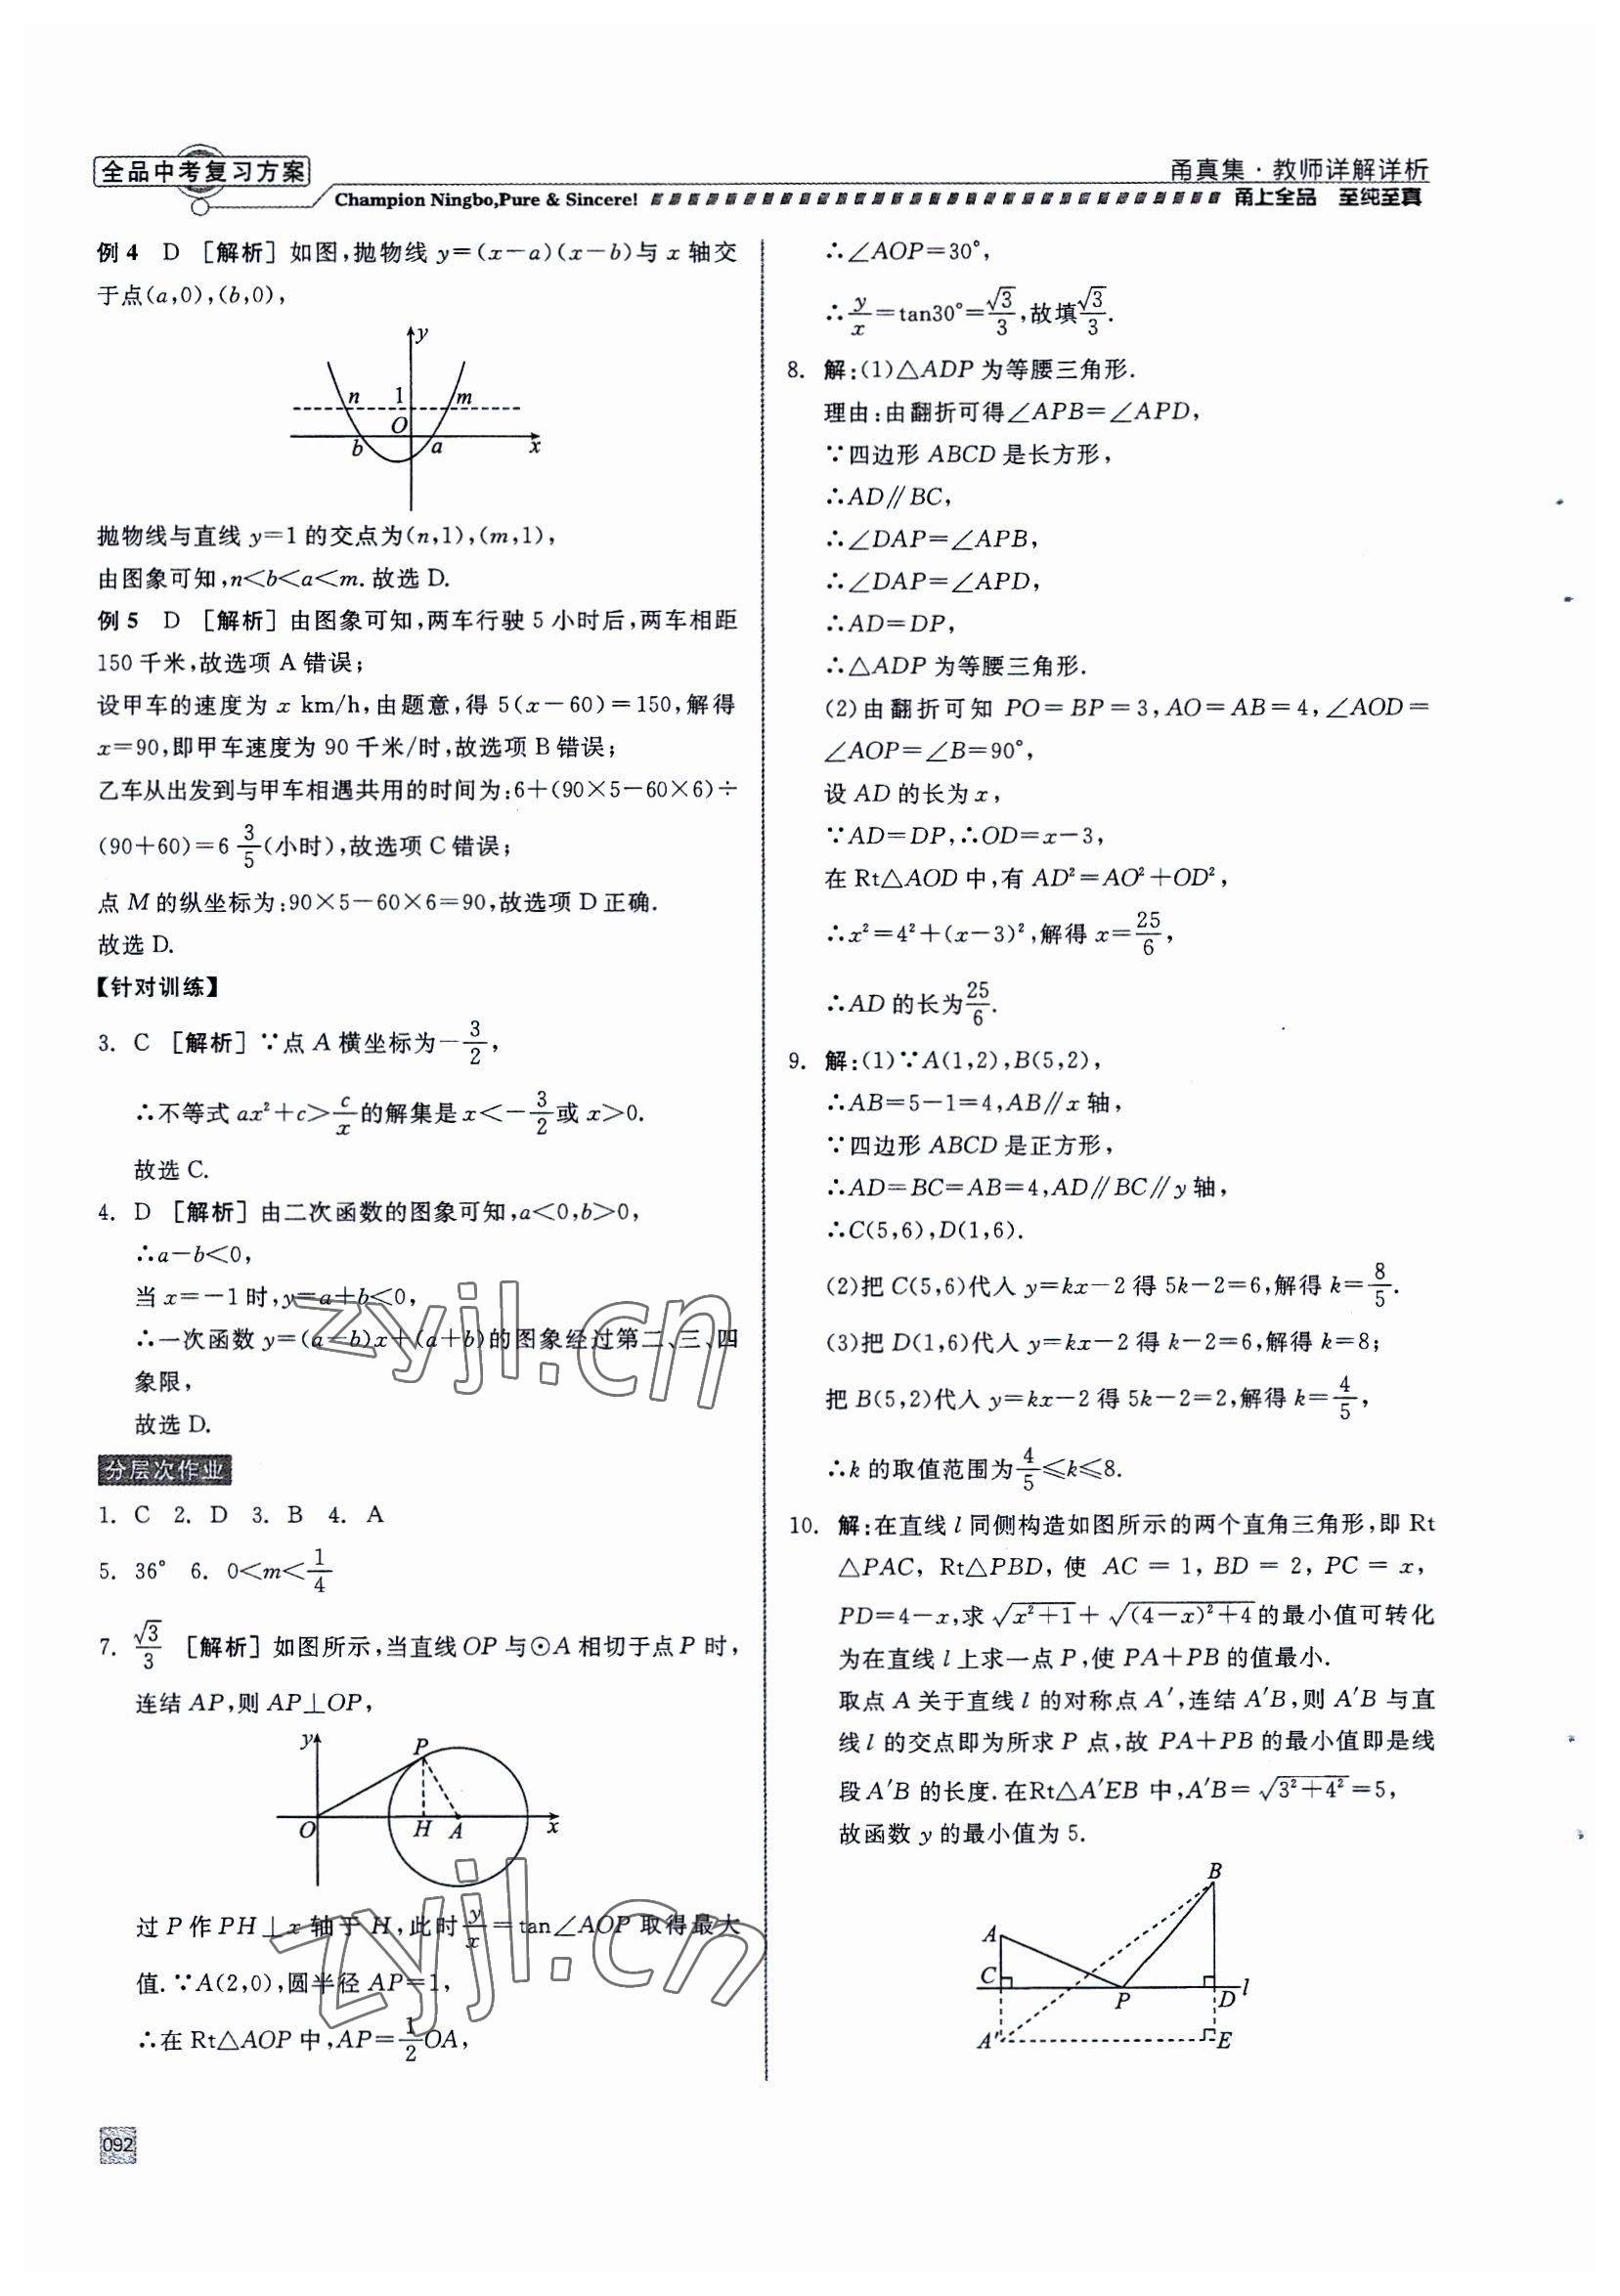 全品中考复习方案
甬真集·教师详解详析
Champion Ningbo,Pure & Sincere!
甬上全品 至纯至真
例4 D [解析]如图,抛物线 y=(x-a)(x-b)与 x 轴交
于点(a,0),(b,0),
y
n 1 m
O
b a x
抛物线与直线 y=1 的交点为(n,1),(m,1),
由图象可知,n<b<a<m.故选 D.
例5 D [解析]由图象可知,两车行驶 5 小时后,两车相距
150 千米,故选项 A 错误;
设甲车的速度为 x km/h,由题意,得 5(x-60)=150,解得
x=90,即甲车速度为 90 千米/时,故选项 B 错误;
乙车从出发到与甲车相遇共用的时间为:6+(90×5-60×6)÷
(90+60)=6 3/5(小时),故选项 C 错误;
点 M 的纵坐标为:90×5-60×6=90,故选项 D 正确.
故选 D.
【针对训练】
3. C [解析]∵点 A 横坐标为-3/2,
∴不等式 ax²+c>c/x的解集是 x<-3/2或 x>0.
故选 C.
4. D [解析]由二次函数的图象可知,a<0,b>0,
∴a-b<0,
当 x=-1 时,y=a+b<0,
∴一次函数 y=(a-b)x+(a+b)的图象经过第二、三、四
象限,
故选 D.
分层次作业
1. C 2. D 3. B 4. A
5. 36° 6. 0<m<1/4
7. √3/3 [解析]如图所示,当直线 OP 与⊙A 相切于点 P 时,
连结 AP,则 AP⊥OP,
y
P
O H A x
过 P 作 PH⊥x 轴于 H,此时y/x=tan∠AOP 取得最大
值.∵A(2,0),圆半径 AP=1,
∴在 Rt△AOP 中,AP=1/2OA,
∴∠AOP=30°,
∴y/x=tan30°=√3/3,故填√3/3.
8. 解:(1)△ADP 为等腰三角形.
理由:由翻折可得∠APB=∠APD,
∵四边形 ABCD 是长方形,
∴AD∥BC,
∴∠DAP=∠APB,
∴∠DAP=∠APD,
∴AD=DP,
∴△ADP 为等腰三角形.
(2)由翻折可知 PO=BP=3,AO=AB=4,∠AOD=
∠AOP=∠B=90°,
设 AD 的长为 x,
∵AD=DP,∴OD=x-3,
在 Rt△AOD 中,有 AD²=AO²+OD²,
∴x²=4²+(x-3)²,解得 x=25/6,
∴AD 的长为25/6.
9. 解:(1)∵A(1,2),B(5,2),
∴AB=5-1=4,AB∥x 轴,
∵四边形 ABCD 是正方形,
∴AD=BC=AB=4,AD∥BC∥y 轴,
∴C(5,6),D(1,6).
(2)把 C(5,6)代入 y=kx-2 得 5k-2=6,解得 k=8/5.
(3)把 D(1,6)代入 y=kx-2 得 k-2=6,解得 k=8;
把 B(5,2)代入 y=kx-2 得 5k-2=2,解得 k=4/5,
∴k 的取值范围为4/5≤k≤8.
10. 解:在直线 l 同侧构造如图所示的两个直角三角形,即 Rt
△PAC, Rt△PBD, 使 AC = 1, BD = 2, PC = x,
PD=4-x,求√(x²+1)+√((4-x)²+4)的最小值可转化
为在直线 l 上求一点 P,使 PA+PB 的值最小.
取点 A 关于直线 l 的对称点 A′,连结 A′B,则 A′B 与直
线 l 的交点即为所求 P 点,故 PA+PB 的最小值即是线
段 A′B 的长度.在Rt△A′EB 中,A′B=√(3²+4²)=5,
故函数 y 的最小值为 5.
B
A
C
P D l
A′ E
zyjl.cn
zyjl.cn
092